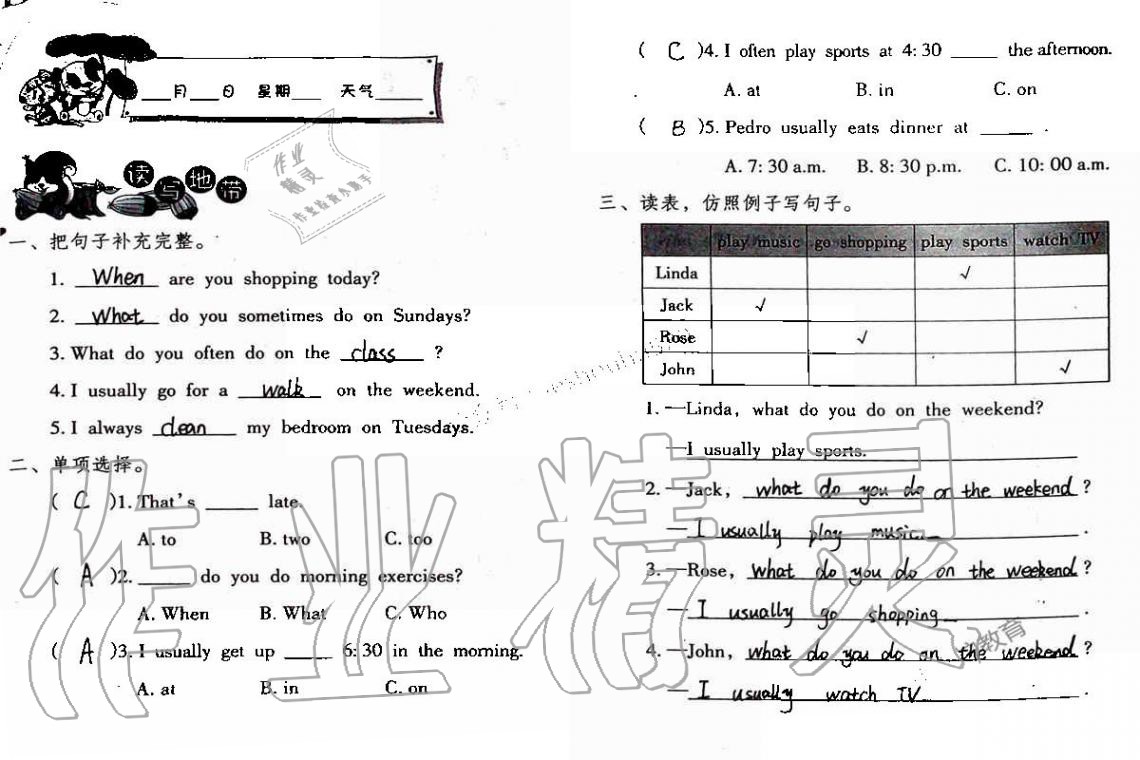 ___月___日 星期___ 天气_____
读写地带
一、把句子补充完整。
1. When are you shopping today?
2. What do you sometimes do on Sundays?
3. What do you often do on the class ?
4. I usually go for a walk on the weekend.
5. I always clean my bedroom on Tuesdays.
二、单项选择。
( C )1. That's _____ late.
A. to B. two C. too
( A )2. _____ do you do morning exercises?
A. When B. What C. Who
( A )3. I usually get up _____ 6:30 in the morning.
A. at B. in C. on
( C )4. I often play sports at 4:30 _____ the afternoon.
A. at B. in C. on
( B )5. Pedro usually eats dinner at _____ .
A. 7:30 a.m. B. 8:30 p.m. C. 10:00 a.m.
三、读表，仿照例子写句子。
play music go shopping play sports watch TV
Linda √
Jack √
Rose √
John √
1. —Linda, what do you do on the weekend?
—I usually play sports.
2. —Jack, what do you do on the weekend ?
—I usually play music.
3. —Rose, what do you do on the weekend ?
—I usually go shopping .
4. —John, what do you do on the weekend ?
—I usually watch TV .
作业精灵
作业
精灵
教育